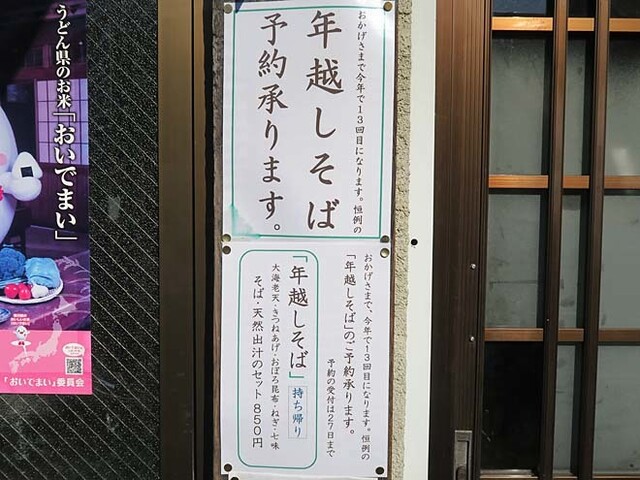 おかげさまで今年で13回目になります。恒例の
年越しそば
予約承ります。
おかげさまで、今年で13回目になります。恒例の
「年越しそば」のご予約承ります。
予約の受付は27日まで
「年越しそば」
持ち帰り
大海老天・きつねあげ・おぼろ昆布・ねぎ・七味
そば・天然出汁のセット850円
うどん県のお米
「おいでまい」
「おいでまい」委員会